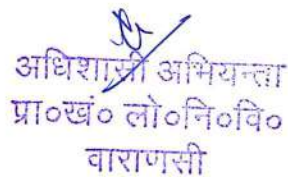 अधिशासी अभियन्ता
प्रा०खं० लो०नि०वि०
वाराणसी